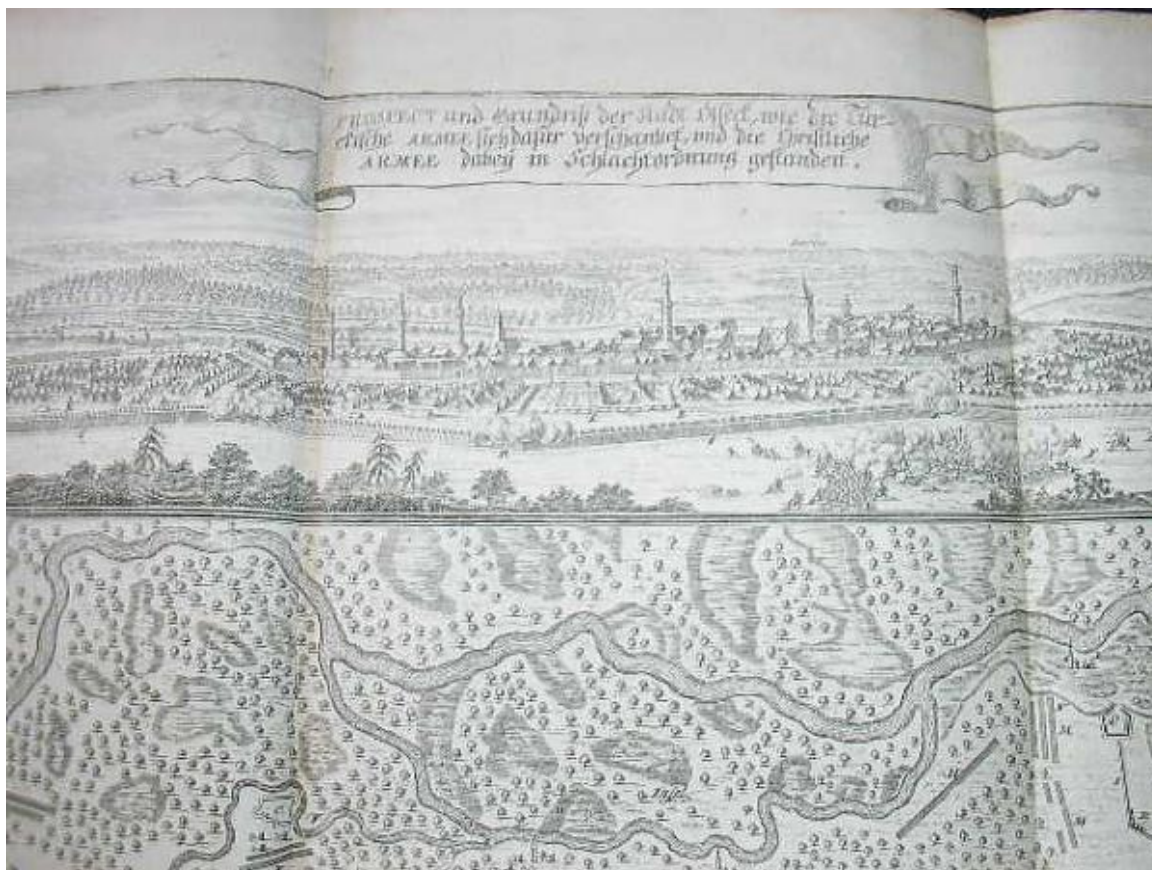 PROSPECT und Grundriß der Stadt Esseck, wie die Tür-
ckische ARMEE sich dafür verschantzet, und die Christliche
ARMEE dabey in Schlachtordnung gestanden.
Insel